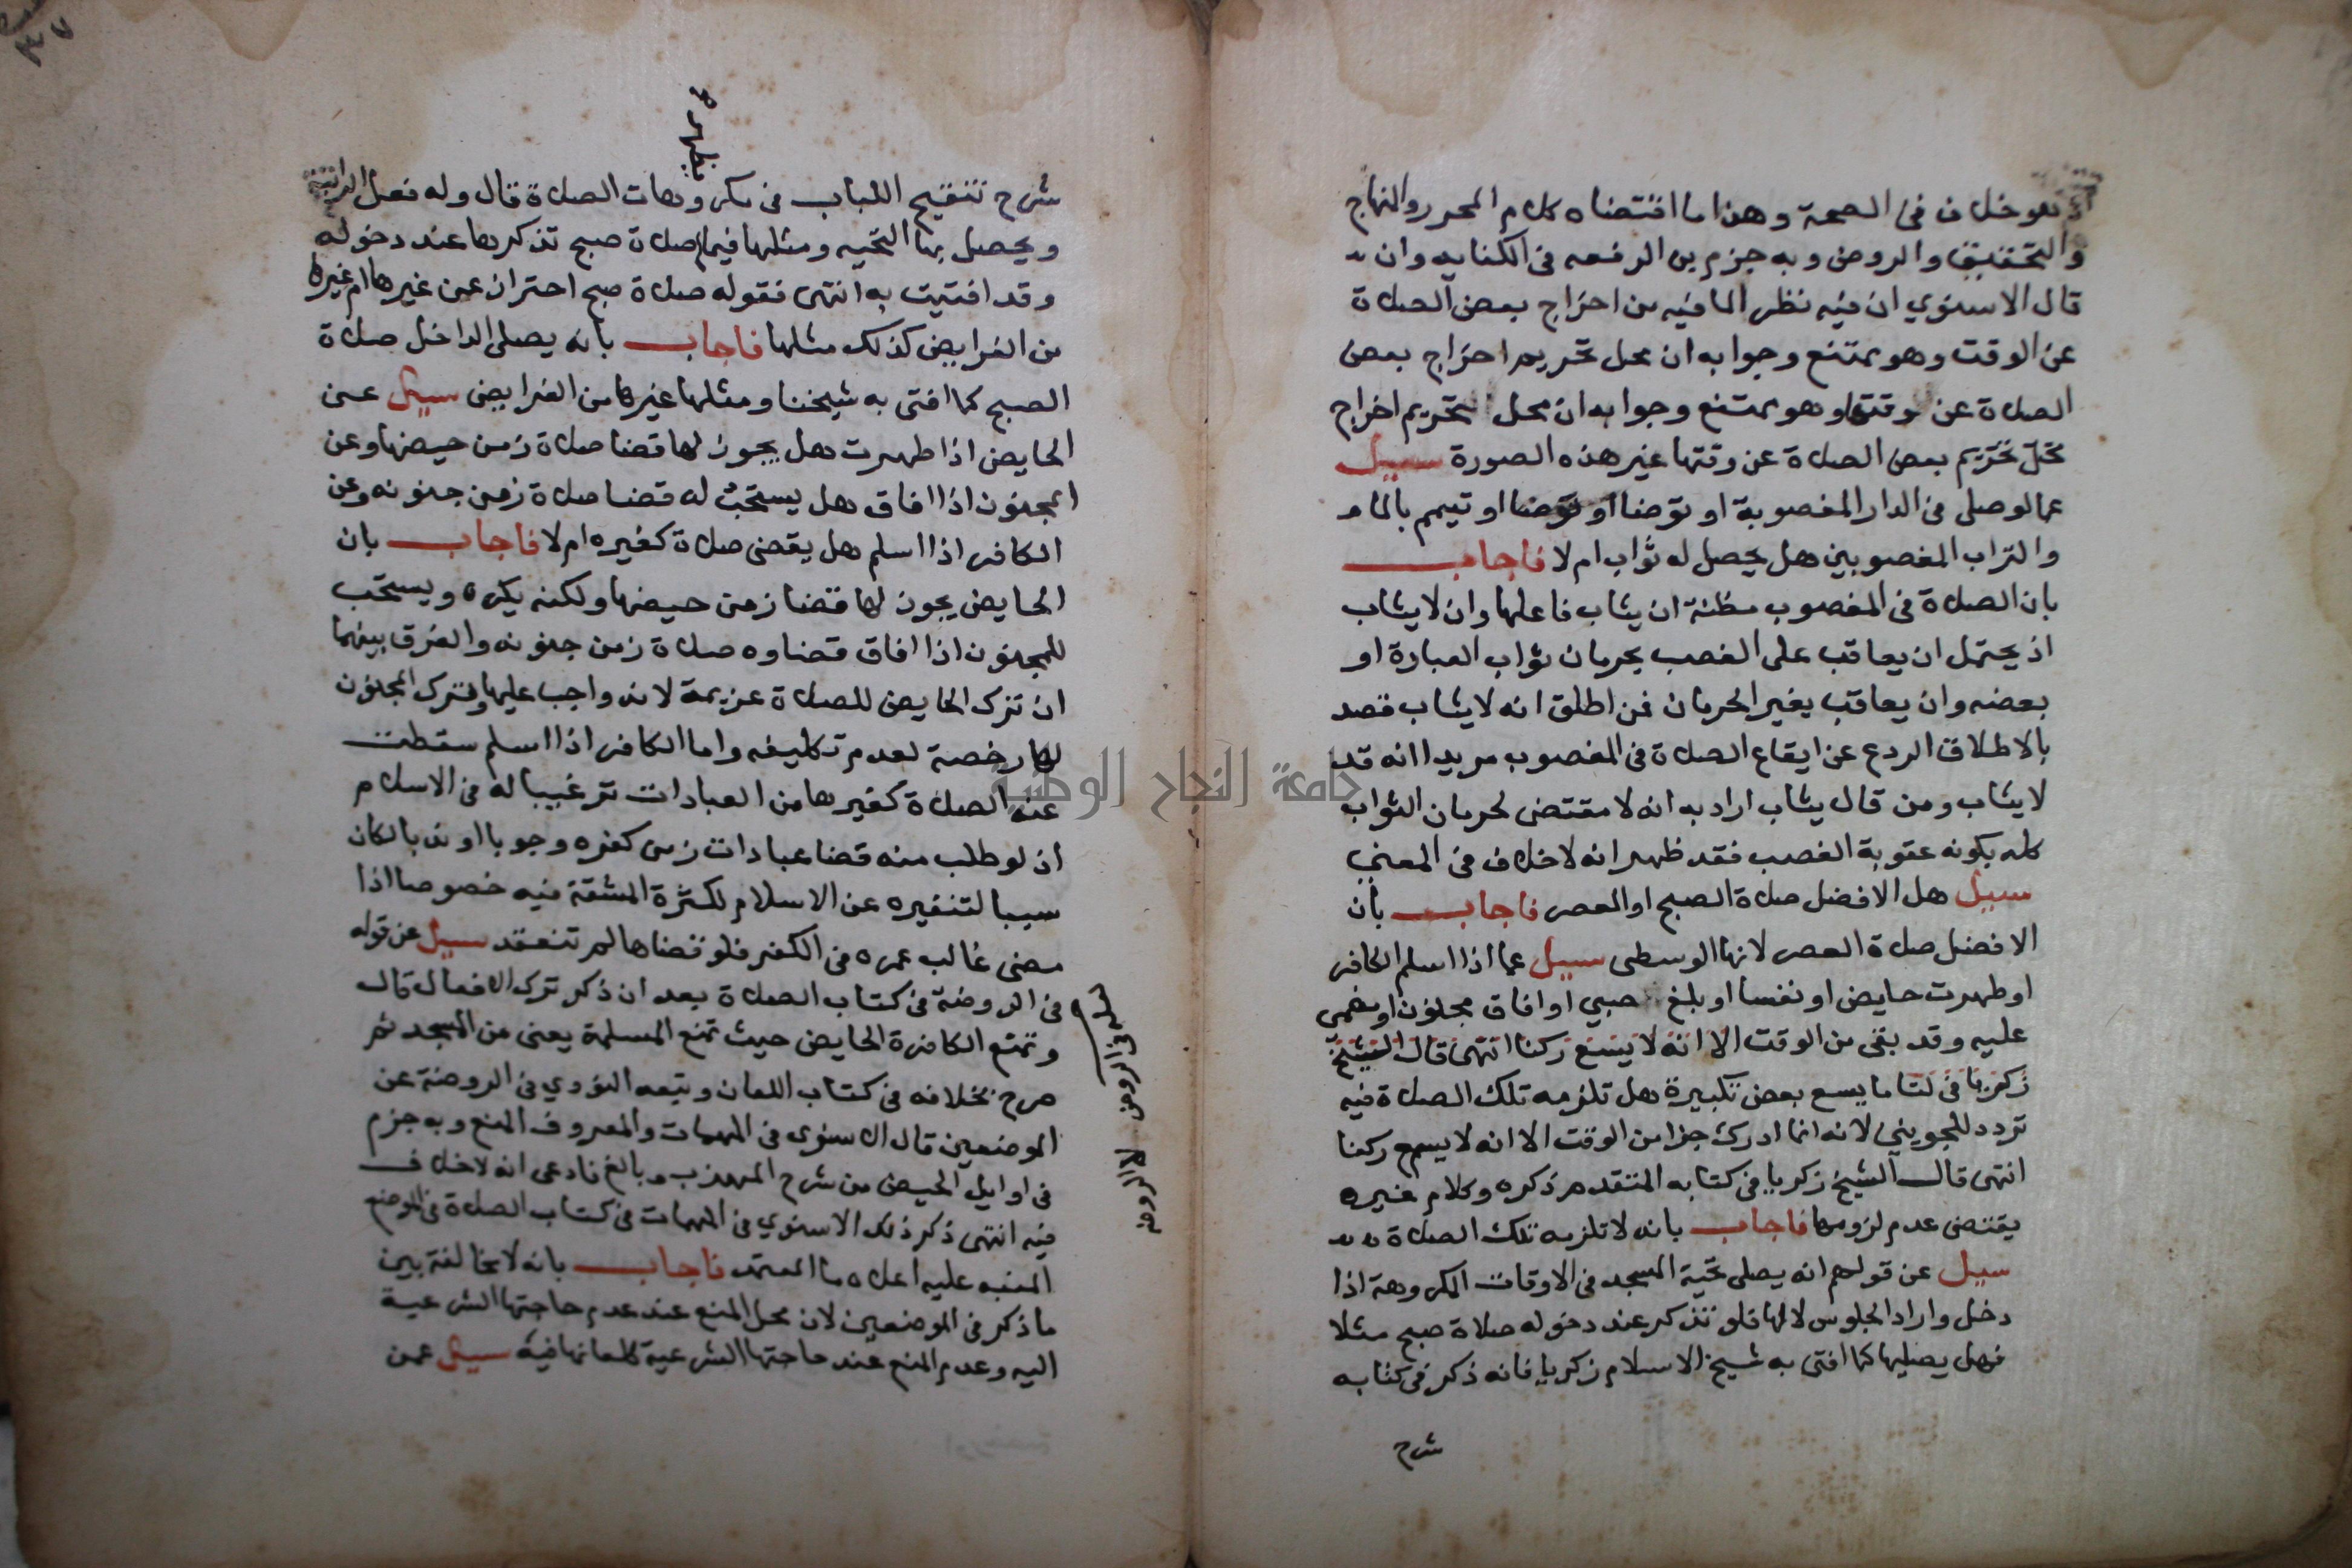 بعدو خلاف في الصحة وهذا ما اقتضاه كلام المحرر والمنهاج
والتحقيق والروض وبه جزم بن الرفعه في الكفايه وان
قال الاسنوي ان فيه نظر الما فيه من اخراج بعض الصلاة
عن الوقت وهو ممتنع وجوابه ان محل تحريم اخراج بعض
الصلاة عن وقتها وهو ممتنع وجوابه ان محل تحريم اخراج
محل تحريم بعض الصلاة عن وقتها غير هذه الصورة سيل
عمالو صلى في الدار المغصوبة او توضا او توضا او تيمم بالما
والتراب المغصوبين هل يحصل له ثواب ام لا فاجاب
بان الصلاة في المغصوب مظنة ان يثاب فاعلها وان لا يثاب
اذ يحتمل ان يعاقب على الغصب بحرمان ثواب العبادة او
بعضه وان يعاقب بغير الحرمان فمن اطلق انه لا يثاب قصد
بالاطلاق الردع عن ايقاع الصلاة في المغصوب مريدا انه قد
لا يثاب ومن قال يثاب اراد به انه لا مقتضى لحرمان الثواب
كله بكونه عقوبة الغصب فقد ظهر انه لا خلاف في المعنى
سيل هل الافضل صلاة الصبح او العصر فاجاب بان
الافضل صلاة العصر لانها الوسطى سيل عما اذا اسلم الكافر
او طهرت حايض او نفسا او بلغ صبي او افاق مجنون او مغمى
عليه وقد بقى من الوقت الا انه لا يسع ركنا انتهى قال الشيخ
زكريا في ما يسع بعض تكبيرة هل تلزمه تلك الصلاة فيه
تردد للجويني لانه انما ادرك جزا من الوقت الا انه لا يسع ركنا
انتهى قال الشيخ زكريا في كتابه المتقدم ذكره وكلام غيره
يقتضى عدم لزومها فاجاب بانه لا تلزمه تلك الصلاة
سيل عن قولهم انه يصلى تحية المسجد في الاوقات المكروهة اذا
دخل واراد الجلوس لا لها فلو تذكر عند دخوله صلاة صبح مثلا
فهل يصليها كما افتى به شيخ الاسلام زكريا فانه ذكر في كتابه
شرح
بظهره
شرح تنقيح اللباب في مكروهات الصلاة قال وله فعل الراتبة
ويحصل بها التحيه ومثلها فيما صلاة صبح تذكرها عند دخوله
وقد افتيت به انتهى فقوله صلاة صبح احتراز عن غيرها ام غيرها
من الفرايض كذلك مثلها فاجاب بانه يصلى الداخل صلاة
الصبح كما افتى به شيخنا ومثلها غيرها من الفرايض سيل عن
الحايض اذا طهرت هل يجوز لها قضا صلاة زمن حيضها وعن
المجنون اذا افاق هل يستحب له قضا صلاة زمن جنونه وعن
الكافر اذا اسلم هل يقضى صلاة كفره ام لا فاجاب بان
الحايض يجوز لها قضا زمن حيضها ولكنه يكره ويستحب
للمجنون اذا افاق قضاوه صلاة زمن جنونه والفرق بينهما
ان ترك الحايض للصلاة عزيمة لانه واجب عليها وترك المجنون
لها رخصة لعدم تكليفه واما الكافر اذا اسلم سقطت
عنه الصلاة كغيرها من العبادات ترغيبا له في الاسلام
اذ لو طلب منه قضا عبادات زمن كفره وجوبا او ندبا لكان
سببا لتنفيره عن الاسلام لكثرة المشقة فيه خصوصا اذا
مضى غالب عمره في الكفر فلو قضاها لم تنعقد سيل عن قوله
في الروضة في كتاب الصلاة بعد ان ذكر ترك الافعال قال
وتمنع الكافرة الحايض حيث تمنع المسلمة يعنى من المسجد ثم
صرح بخلافه في كتاب اللعان وتبعه النووي في الروضة عن
الموضعين قال الاسنوى في المهمات والمعروف المنع وبه جزم
في اوايل الحيض من شرح المهذب وبالغ فادعى انه لا خلاف
فيه انتهى ذكر ذلك الاسنوي في المهمات في كتاب الصلاة في الموضع
المنبه عليه اعلاه ما المعتمد فاجاب بانه لا مخالفة بين
ما ذكر في الموضعين لان محل المنع عند عدم حاجتها الشرعية
اليه وعدم المنع عند حاجتها الشرعية سيل عمن
في الروض لا الروضة
جامعة النجاح الوطنية